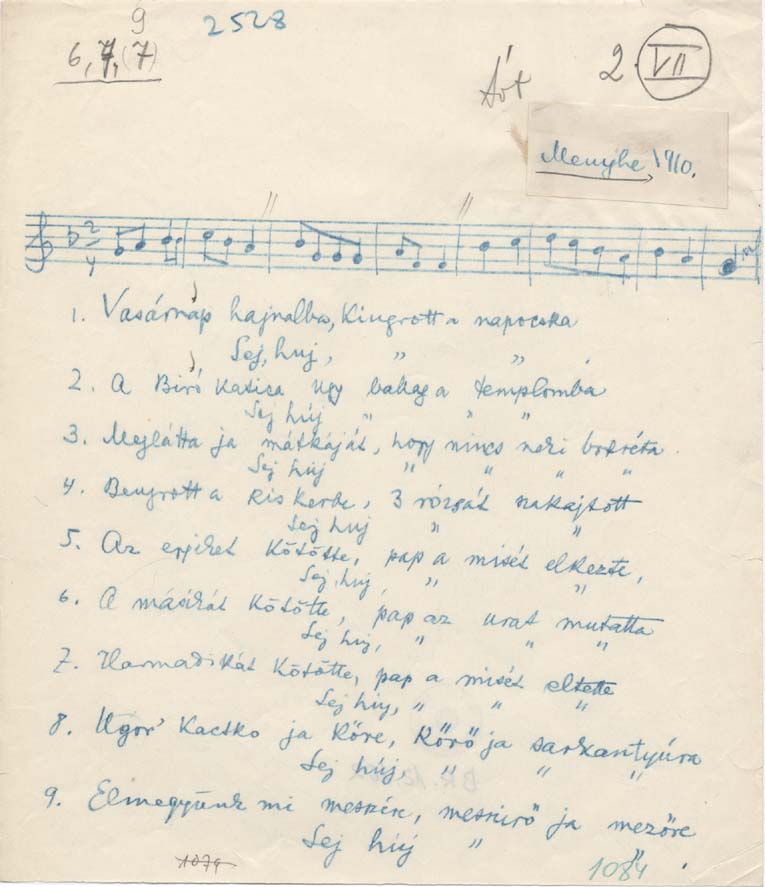 9
2528
6, 7, (7)
2. VII
Tót
Menyhe 1910.
1. Vasárnap hajnalba, Kiugrott a napocska
Sej, huj, " "
2. A Biró Katica ugy ballag a templomba
Sej húj " " "
3. Meglátta ja mátkáját, hogy nincs neki bokréta
Sej húj " " " "
4. Beugrott a kis kerbe, 3 rózsát szakajtott
Sej huj " "
5. Az egyiket kötötte, pap a misét elkezte,
Sej, huj, " "
6. A másikát kötötte, pap az urat mutatta
Sej húj, " " "
7. Harmadikát kötötte, pap a misét eltette
Sej húj, " " "
8. Ugor' Kacsko ja kőre, kőrő ja sarkantyúra
Sej húj, " " "
9. Elmegyünk mi meszire, meszirő ja mezőre
Sej húj " "
1079
1084